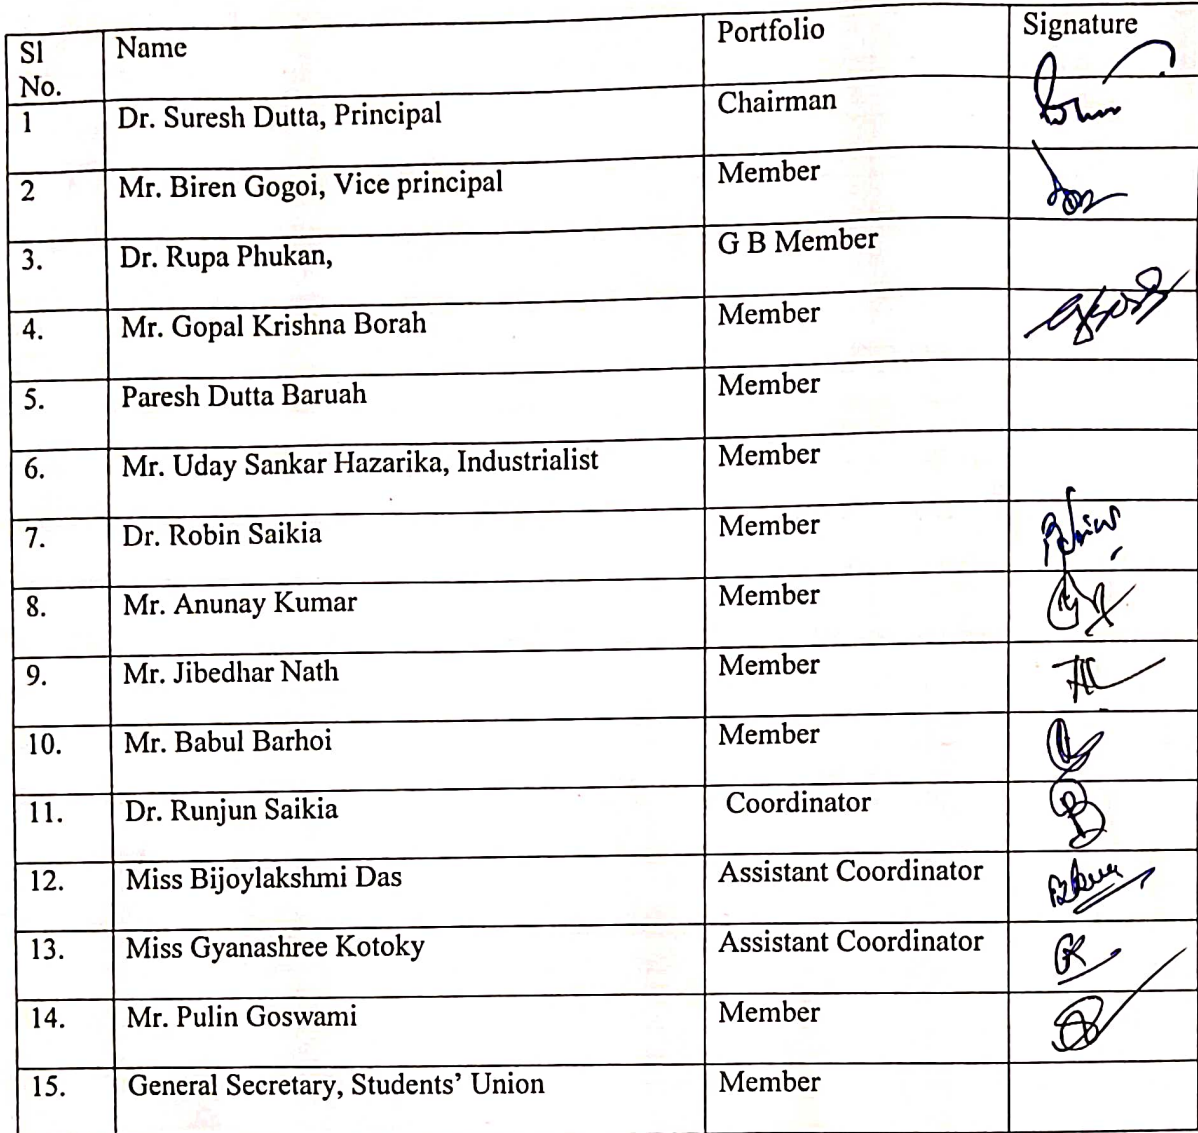 Sl No. Name Portfolio Signature
1 Dr. Suresh Dutta, Principal Chairman
2 Mr. Biren Gogoi, Vice principal Member
3. Dr. Rupa Phukan, G B Member
4. Mr. Gopal Krishna Borah Member
5. Paresh Dutta Baruah Member
6. Mr. Uday Sankar Hazarika, Industrialist Member
7. Dr. Robin Saikia Member
8. Mr. Anunay Kumar Member
9. Mr. Jibedhar Nath Member
10. Mr. Babul Barhoi Member
11. Dr. Runjun Saikia Coordinator
12. Miss Bijoylakshmi Das Assistant Coordinator
13. Miss Gyanashree Kotoky Assistant Coordinator
14. Mr. Pulin Goswami Member
15. General Secretary, Students’ Union Member